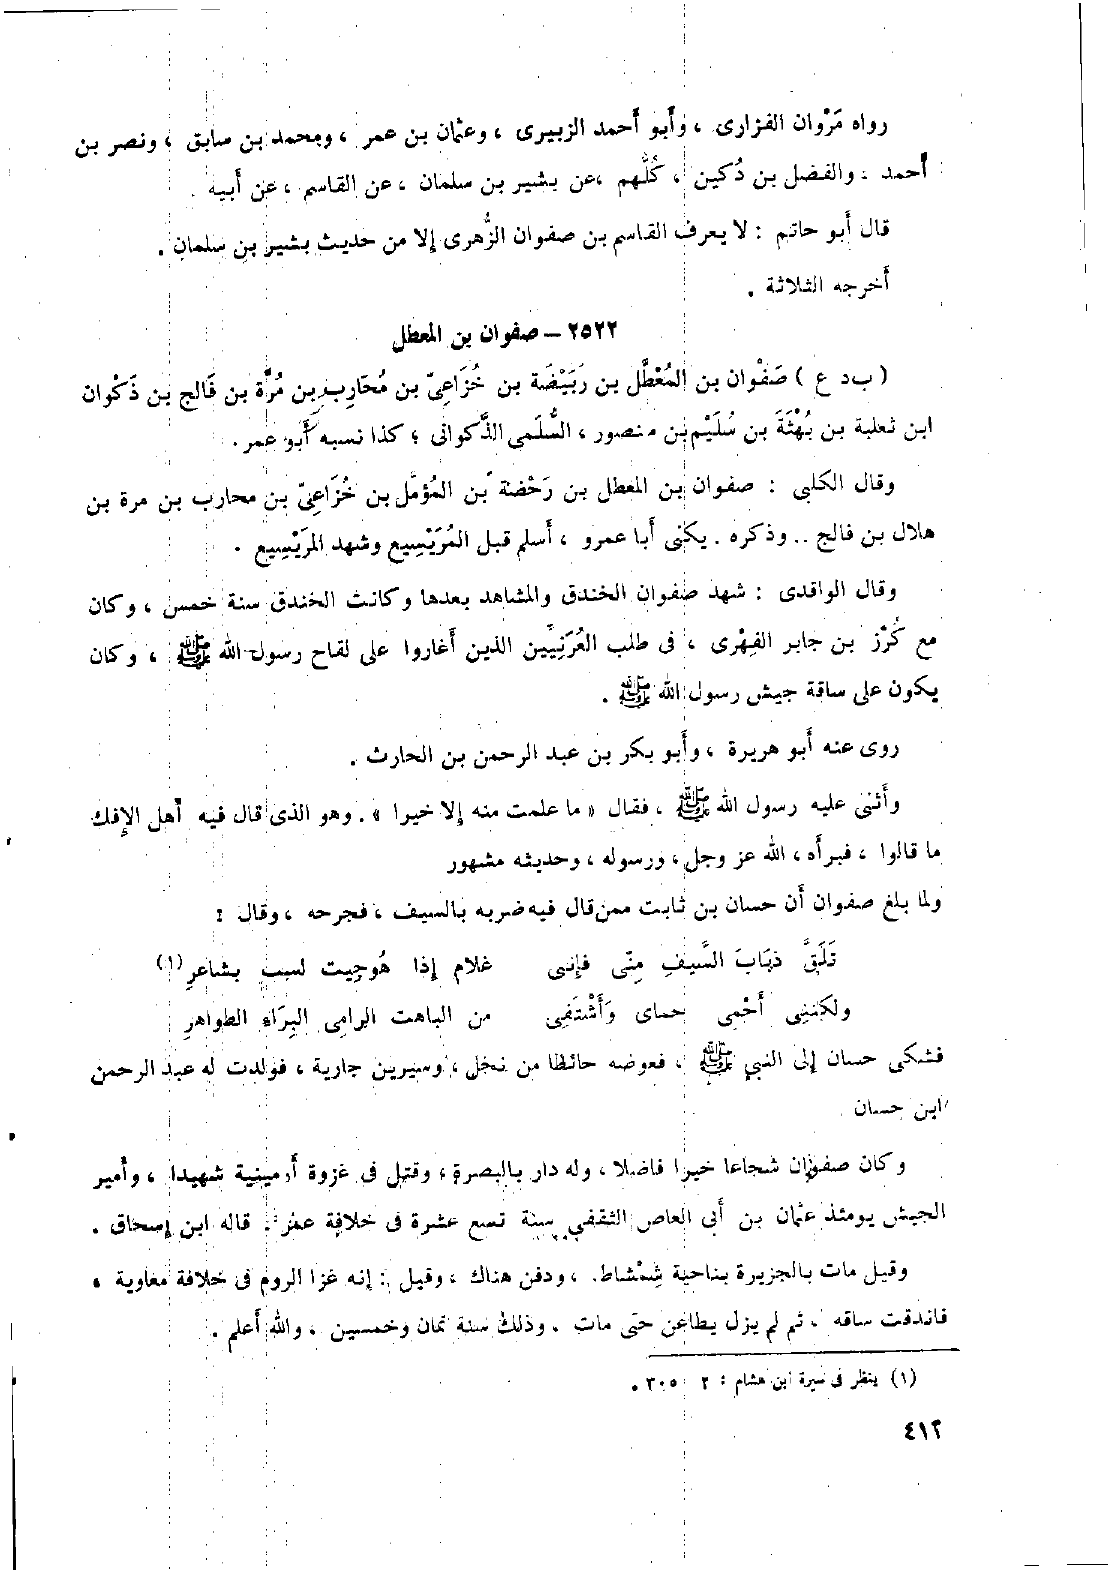 رواه مَرْوان الفزارى ، وأبو أحمد الزبيرى ، وعثمان بن عمر ، ومحمد بن سابق ، ونصر بن
أحمد ، والفضل بن دُكين ، كُلُّهم ،عن بشير بن سلمان ، عن القاسم ، عن أبيه .
قال أبو حاتم : لا يعرف القاسم بن صفوان الزُّهرى إلا من حديث بشير بن سلمان .
أخرجه الثلاثة .
٢٥٢٢ – صفوان بن المعطل
( ب د ع ) صَفْوان بن المُعْطَّل بن رَبَيْضَة بن خُزَاعِىّ بن مُحَارِب بن مُرَّة بن فَالج بن ذَكْوان
ابن ثعلبة بن بُهْثَةَ بن سُلَيْم بن منصور ، السُّلَمى الذَّكوانى ؛ كذا نسبه أبو عمر .
وقال الكلبى : صفوان بن المعطل بن رَحْضة بن المُؤمَّل بن خُزَاعِىّ بن محارب بن مرة بن
هلال بن فالج .. وذكره . يكنى أبا عمرو ، أسلم قبل المُرَيْسِيع وشهد المرَيْسِيع .
وقال الواقدى : شهد صفوان الخندق والمشاهد بعدها وكانت الخندق سنة خمس ، وكان
مع كُرْز بن جابر الفِهْرى ، فى طلب العُرَنِيِّين الذين أغاروا على لقاح رسول الله ﷺ ، وكان
يكون على ساقة جيش رسول الله ﷺ .
روى عنه أبو هريرة ، وأبو بكر بن عبد الرحمن بن الحارث .
وأثنى عليه رسول الله ﷺ ، فقال « ما علمت منه إلا خيرا » . وهو الذى قال فيه أهل الإفك
ما قالوا ، فبرأه ، الله عز وجل ، ورسوله ، وحديثه مشهور
ولما بلغ صفوان أن حسان بن ثابت ممن قال فيه ضربه بالسيف ، فجرحه ، وقال :
تَلَقَّ ذبَابَ السَّيفِ مِنّى فإننى غلام إذا هُوجِيت لست بشاعرِ (١)
ولكننى أَحْمى حماى وَأَشْتَفِى من الباهت الرامى البِرَاء الطواهرِ
فشكى حسان إلى النبي ﷺ ، فعوضه حائطا من نخل ، وسيرين جارية ، فولدت له عبد الرحمن
ابن حسان
وكان صفوان شجاعا خيرا فاضلا ، وله دار بالبصرة ، وقتل فى غزوة أرمينية شهيدا ، وأمير
الجيش يومئذ عثمان بن أبى العاص الثقفي سنة تسع عشرة فى خلافة عمر . قاله ابن إسحاق .
وقيل مات بالجزيرة بناحية شِمْشاط. ، ودفن هناك ، وقيل : إنه غزا الروم فى خلافة معاوية ،
فاندقت ساقه ، ثم لم يزل يطاعن حتى مات . وذلك سنة ثمان وخمسين ، والله أعلم .
(١) ينظر فى سيرة ابن هشام : ٢ ٣٠٥ .
٤١٢